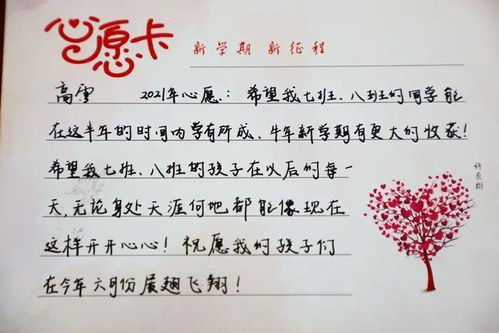 心愿卡
新学期 新征程
高雪 2021年心愿：希望我七班、八班的同学能
在这半年的时间内学有所成，牛年新学期有更大的收获！
希望我七班、八班的孩子在以后的每一
天，无论身处天涯何吧都能像现在
这样开开心心！祝愿我的孩子们
在今年六月份展翅飞翔！
许愿树